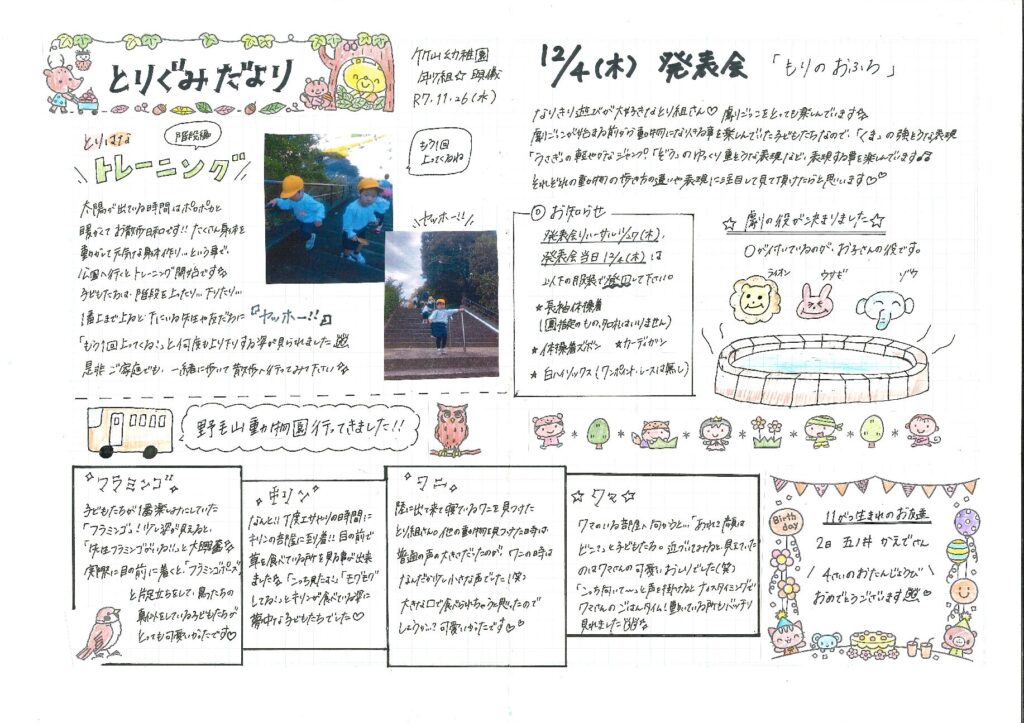 とりぐみだより
竹山幼稚園
年少組☆
R7.11.26(水)
とりはな
階段編
トレーニング
もう1回
上ってくるね
ヤッホー!!
太陽が出ている時間はポカポカと
暖かくてお散歩日和です!! たくさん身体を
動かして元気な身体作り…という事で、
公園へ行くとトレーニング開始です
子どもたちは、階段を上ったり…下りたり…
1番上まで上ると下にいる先生や友だちに『ヤッホー!!』
「もう1回上ってくるね!」と何度も上り下りする姿が見られました
是非ご家庭でも、一緒に歩いて散歩へ行ってみて下さい
12/4(木) 発表会 「もりのおふろ」
なりきり遊びが大好きなとり組さん♡ 劇ごっこをとっても楽しんでいます
劇ごっこが始まる前から動物になりきる事を楽しんでいた子どもたちなので、「くま」の強そうな表現
「うさぎ」の軽やかなジャンプ「ぞう」のゆっくり重そうな表現など、表現する事を楽しんでいます♪♪
それぞれの動物の歩き方の違いや表現に注目して見て頂けたらと思います♡♡
◎ お知らせ
発表会リハーサル11/27(木)、
発表会当日12/4(木)は
以下の服装で登園して下さい。
★長袖体操着
(園指定のもの、名札はいりません)
★体操着ズボン ★カーディガン
★白ハイソックス(ワンポイント・レースは無し)
☆ 劇の役が決まりました☆
○が付いているのが、お子さんの役です。
ライオン ウサギ ゾウ
野毛山動物園行ってきました!!
フラミンゴ
子どもたちが1番楽しみにしていた
「フラミンゴ」! 少し姿が見えると、
「先生フラミンゴがいる!!」と大興奮
実際に目の前に着くと、「フラミンゴポーズ」
と片足立ちをして、鳥たちの
真似をしている子どもたちが
とっても可愛いかったです♡
キリン
なんと!! 丁度エサやりの時間に
キリンの部屋に到着!! 目の前で
草を食べている所を見る事が出来
ました 「こっち見たよ!」「モグモグ
してる!」とキリンが食べている姿に
夢中な子どもたちでした♡
ワニ
陸に出て来て寝ているワニを見つけた
とり組さん。他の動物を見つけた時は
普通の声の大きさだったのが、ワニの時は
なんだか少し小さな声でした(笑)
大きな口で食べられちゃうと思ったので
しょうか…? 可愛いかったです♡♡
☆ クマ ☆
クマのいる部屋へ向かうと…「あれ?顔は
どこ?」と子どもたち。近づいてみると、見えていた
のはクマさんの可愛いおしりでした(笑)
「こっち向いて~」と声を掛けるとナイスタイミングで
クマさんのごはんタイム! 動いている所もバッチリ
見れました
Birth
day
11がつ生まれのお友達
2日 五ノ井 かえでさん
4さいのおたんじょうび
おめでとうございます